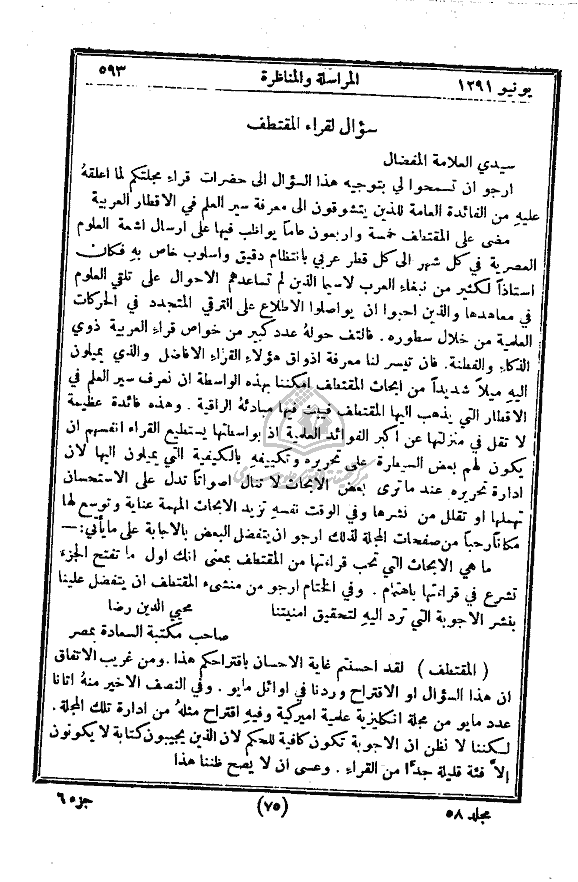 يونيو ١٢٩١ المراسلة والمناظرة ٥٩٣
سؤال لقراء المقتطف
سيدي العلامة المفضال
ارجو ان تسمحوا لي بتوجيه هذا السؤال الى حضرات قراء مجلتكم لما اعلقهُ
عليهِ من الفائدة العامة للذين يتشوقون الى معرفة سير العلم في الاقطار العربية
مضى على المقتطف خمسة واربعون عاماً يواظب فيها على ارسال اشعة العلوم
العصرية في كل شهر الى كل قطر عربي بانتظام دقيق واسلوب خاص بهِ فكان
استاذاً لكثير من نبغاء العرب لاسيما الذين لم تساعدهم الاحوال على تلقي العلوم
في معاهدها والذين احبوا ان يواصلوا الاطلاع على الترقي المتجدد في الحركات
العلمية من خلال سطوره . فالتف حولهُ عدد كبير من خواص قراء العربية ذوي
الذكاء والفطنة. فان تيسر لنا معرفة اذواق هؤلاء القراء الافاضل والذي يميلون
اليهِ ميلاً شديداً من ابحاث المقتطف امكننا بهذه الواسطة ان نعرف سير العلم في
الاقطار التي يذهب اليها المقتطف فيبث فيها مبادئهُ الراقية . وهذه فائدة عظيمة
لا تقل في منزلتها عن اكبر الفوائد العلمية اذ بواسطتها يستطيع القراء انفسهم ان
يكون لهم بعض السيطرة على تحريره وتكييفهِ بالكيفية التي يميلون اليها لان
ادارة تحريره عند ما ترى بعض الابحاث لا تنال اصواتاً تدل على الاستحسان
تهملها او تقلل من نشرها وفي الوقت نفسهِ تزيد الابحاث المهمة عناية وتوسع لها
مكاناً رحباً من صفحات المجلة لذلك ارجو ان يتفضل البعض بالاجابة على ما يأتي:—
ما هي الابحاث التي تحب قراءتها من المقتطف بمعنى انك اول ما تفتح الجزء
تشرع في قراءتها باهتمام . وفي الختام ارجو من منشىء المقتطف ان يتفضل علينا
بنشر الاجوبة التي ترد اليهِ لتحقيق امنيتنا محيي الدين رضا
صاحب مكتبة السعادة بمصر
( المقتطف ) لقد احسنتم غاية الاحسان باقتراحكم هذا . ومن غريب الاتفاق
ان هذا السؤال او الاقتراح وردنا في اوائل مايو . وفي النصف الاخير منهُ اتانا
عدد مايو من مجلة انكليزية علمية اميركية وفيهِ اقتراح مثلهُ من ادارة تلك المجلة .
لكننا لا نظن ان الاجوبة تكون كافية للحكم لان الذين يجيبون كتابة لا يكونون
الاَّ فئة قليلة جدًّا من القراء . وعسى ان لا يصح ظننا هذا
مجلد ٥٨ (٧٥) جزء ٦